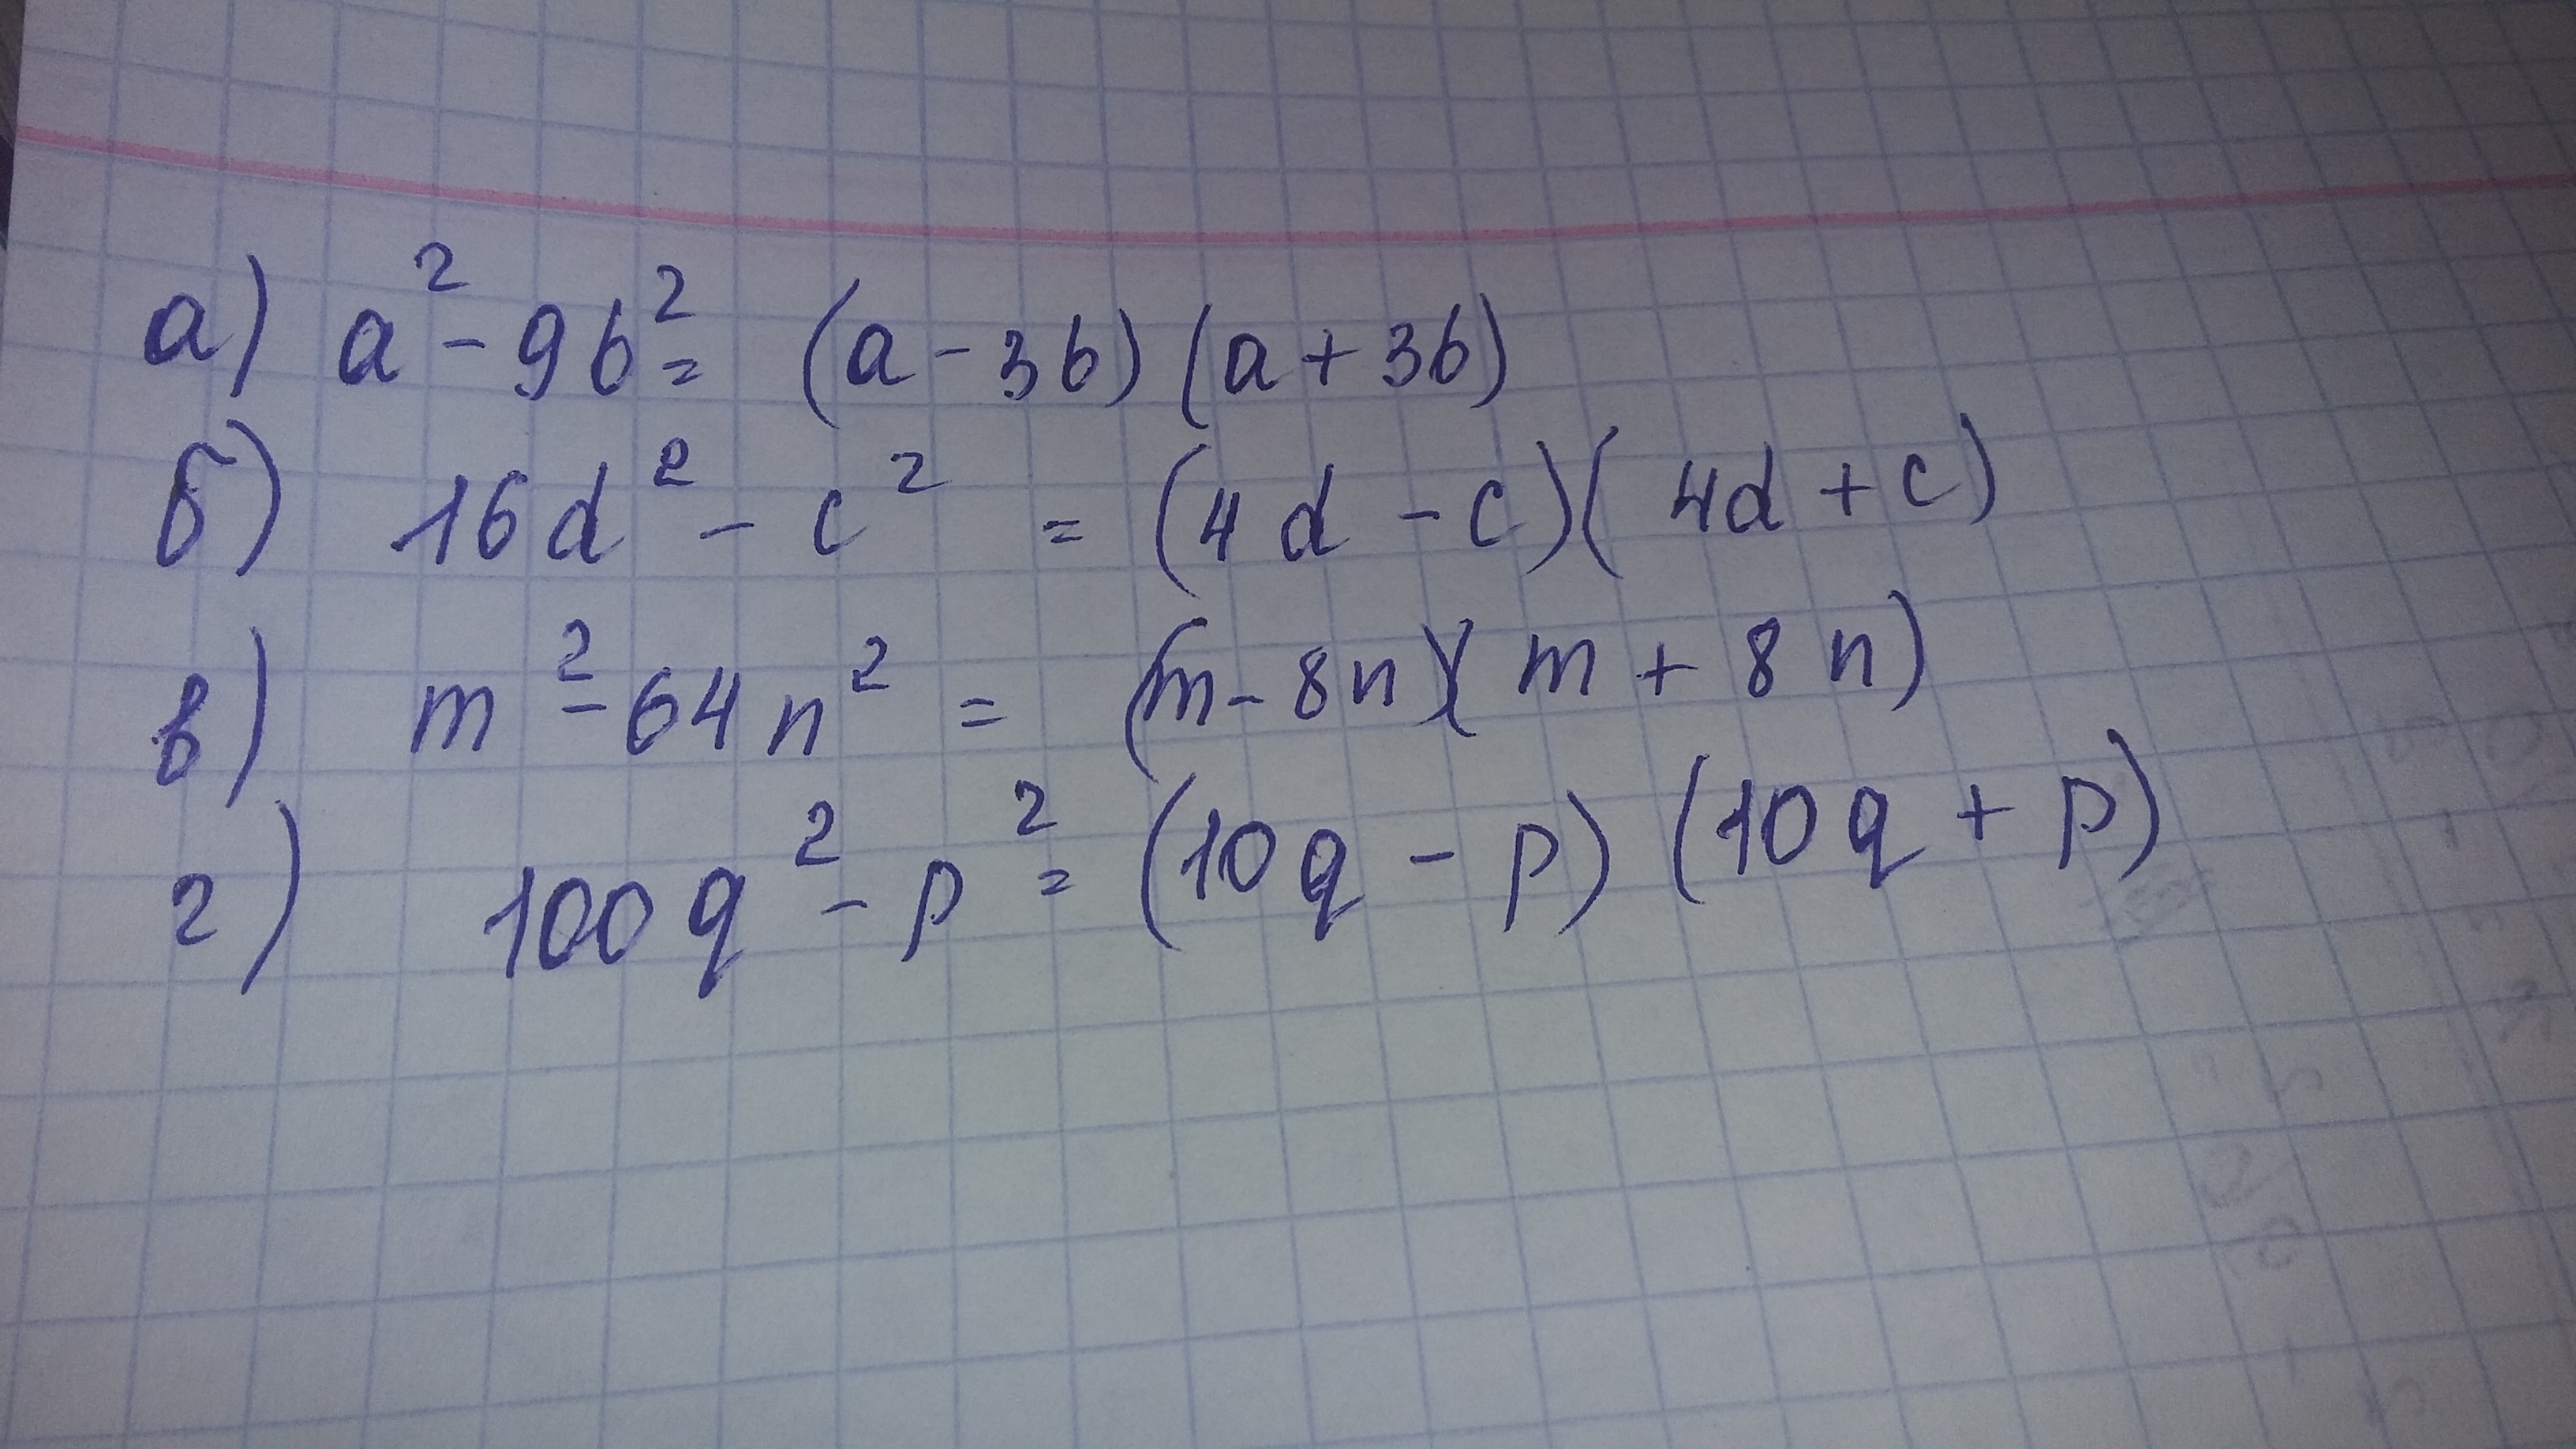 а) a² - 9b² = (a - 3b) (a + 3b)
б) 16d² - c² = (4d - c)(4d + c)
в) m² - 64n² = (m - 8n)(m + 8n)
г) 100q² - p² = (10q - p) (10q + p)